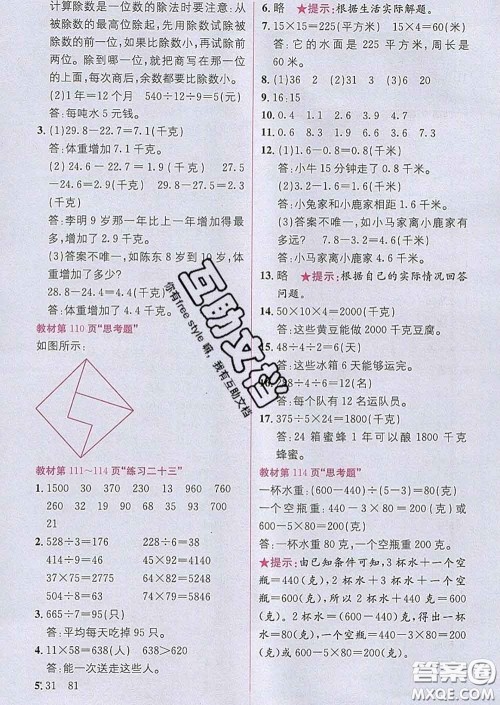 计算除数是一位数的除法时要注意:从
被除数的最高位除起,先用除数试除被
除数的前一位,如果比除数小,再试除前
两位。除到哪一位,就把商写在那一位
的上面,每次商后,余数都要比除数小。
(2)1年=12个月 540÷12÷9=5(元)
答:每吨水5元钱。
3. (1)29.8-22.7=7.1(千克)
答:体重增加7.1千克。
(2)24.6-22.7=1.9(千克) 27.5
-24.6=2.9(千克) 29.8-27.5=2.3
(千克)
答:李明9岁那一年比上一年增加得最
多,增加了2.9千克。
(3)答案不唯一,如陈东8岁到10岁,体
重增加了多少?
28.8-24.4=4.4(千克)
答:体重增加了4.4千克。
教材第110页“思考题”
如图所示:
教材第111~114页“练习二十三”
1. 1500 30 370 230 1140 960
260 32 19 90 68 35 700
21
2. 528÷3=176 228÷6=38
414÷9=46 25×31=775
37×75=2775 64×36=2304
504÷8=63 42×78=3276
3. 665÷7=95(只)
答:平均每天吃掉95只。
4. 11×58=638(人) 638>620
答:能一次送走这些人。
5. 31 81
6. 略 ★提示:根据生活实际解题。
7. 15×15=225(平方米) 15×4=60(米)
答:它的水面是225平方米,周长是
60米。
8. (1)36 22 (2)15 15 (3)6 20
9. 16:15
10. 0.4 1.1 2.7 4.9 1.2 1.6
11. 0.8 9.3 6.8 3.4 6.2
12. (1)1.6-0.8=0.8(千米)
答:小牛15分钟走了0.8千米。
(2)3.2-1.6=1.6(千米)
答:小兔家和小鹿家相距1.6千米。
(3)答案不唯一,如小马家离小鹿家有
多远? 5.8-3.2=2.6(千米)
答:小马家离小鹿家2.6千米。
13. 略 ★提示:根据自己的实际情况回答
问题。
14. 50×10×4=2000(千克)
答:这些黄豆能做2000千克豆腐。
15. 48÷2÷4=6(天)
答:这些冰箱6天能够运完。
16. 288÷4÷6=12(名)
答:每个队有12名运动员。
17. 375÷5×24=1800(千克)
答:24箱蜜蜂1年可以酿1800千克
蜂蜜。
教材第114页“思考题”
一杯水重:(600-440)÷(5-3)=80(克)
一个空瓶重:(600-440)÷2=80(克)
600-5×80=200(克)
答:一杯水重80克,一个空瓶重200克。
★提示:由已知条件可知,3杯水+一个空
瓶=440(克),2杯水+3杯水+一个空
瓶=600(克),可以得出,2杯水+440
(克)=600(克)。2杯水=600-440,得出一
杯水=80(克),一个空瓶=200(克)。
互助文档
你有free style 嘛,我有互助文档
答案圈
MXQE.COM